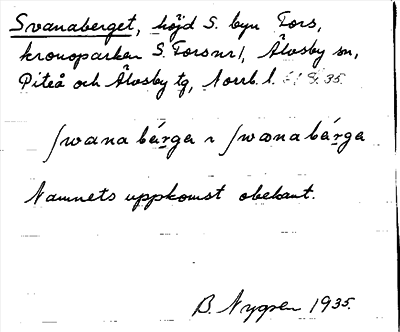 Svanaberget, höjd S. byn Fors,
kronoparken S. Forsnr 1, Älvsby sn,
Piteå och Älvsby tg, Norrb. l.
ʃwanabárga ɿ ʃwanabárga
Namnets uppkomst obekant.
B. Nygren 1935.